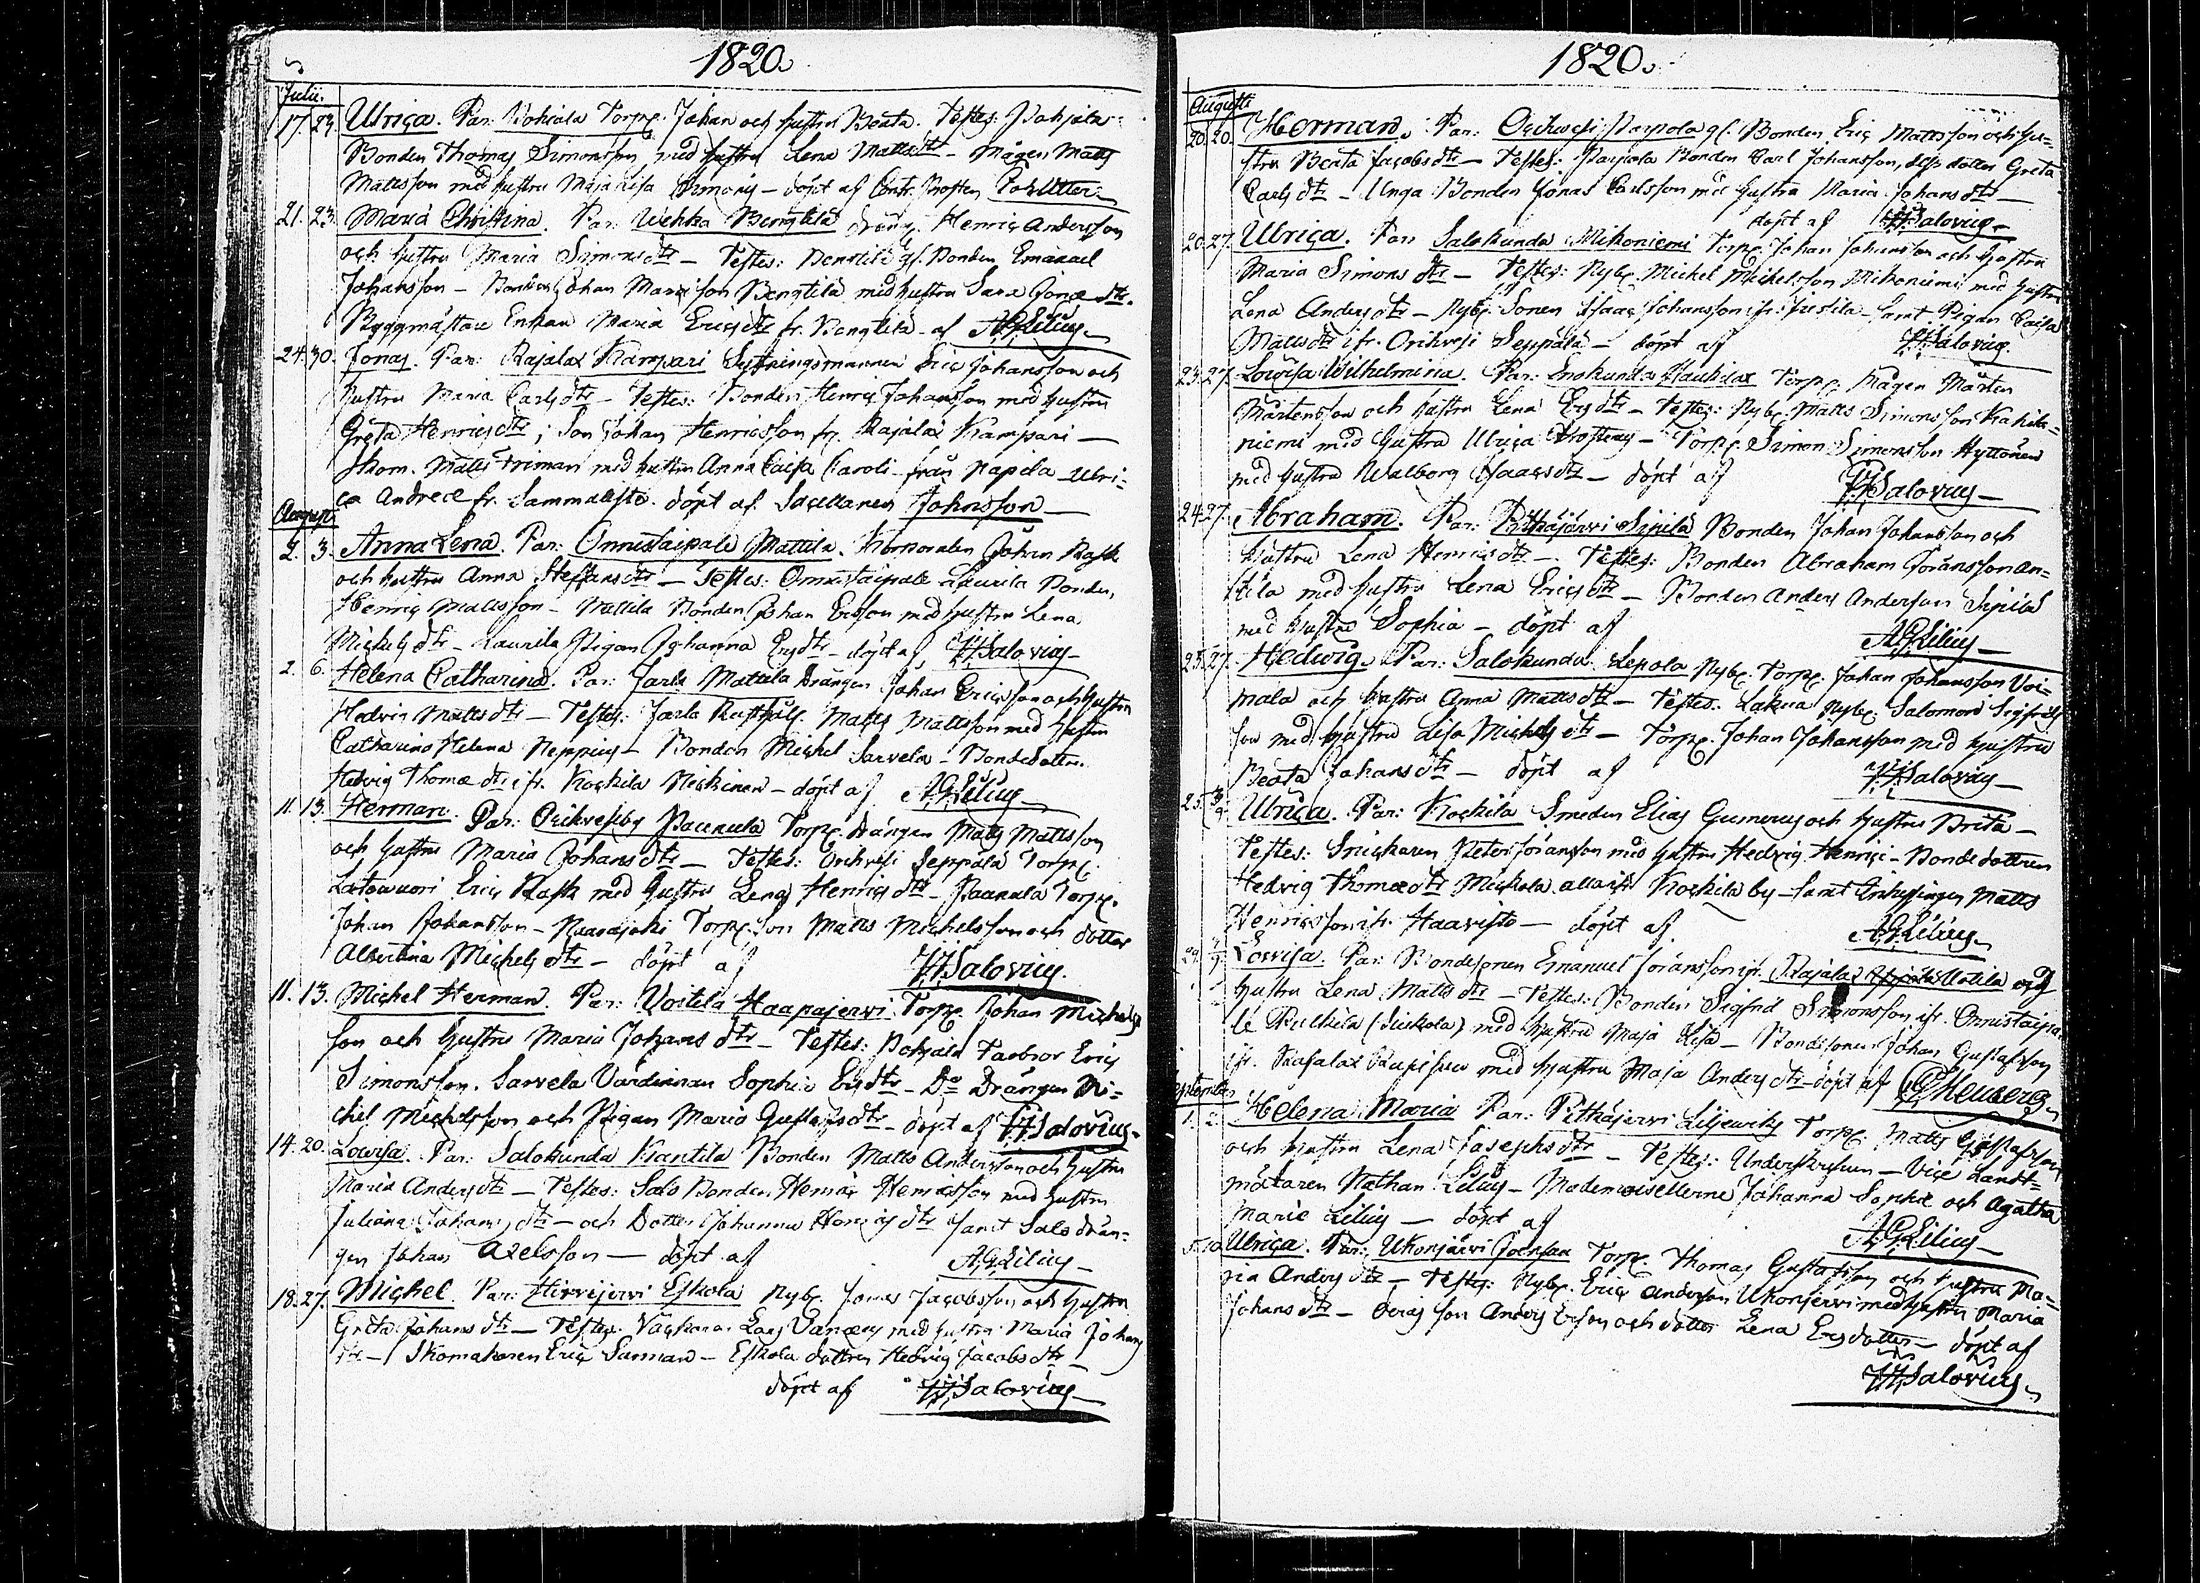 1820.
Julii.
17. 23. Ulrica. Par: Pohjala Torp. Johan och hustru Beata. Testes: Pohjala
Bonden Thomas Simonsson med hustru Lena Matts dtr – Mågen Matts
Mattsson med hustru Maja Lisa Simonis – döpt af
21. 23. Maria Christina. Par: Wehka Bengtilä Dräng. Henric Andersson
och hustru Maria Simons dtr – Testes: Bengtilä gl. Bonden Emanuel
Johansson – Bonden Johan Mansson Bengtilä med hustru Sara Jonæ dtr.
Byggmästare Enkan Maria Erics dtr fr. Bengtilä – af A.G. Lilius
24. 30. Jonas. Par: Rajalax Kampari Sytningsmannen Eric Johansson och
hustru Maria Carls dtr – Testes: Bonden Henric Johansson med hustru
Greta Henrics dtr; Son Johan Henricsson fr. Rajalax Kampari –
Skom. Matts Friman med hustru Anna Caisa Caroli – från Papila Ulri-
ca Andreæ fr. Sammallisto. döpt af Sacellanen Johnsson
August
2. 3. Anna Lena. Par: Onnistaipale Mattila. Korporalen Johan Rask
och hustru Anna Steffans dtr – Testes: Onnistaipale Laurila Bonden
Henric Mattsson – Mattila Bonden Johan Ericsson med hustru Lena
Michels dtr – Laurila Pigan Johanna Ers dtr – döpt af Salovius
2. 6. Helena Catharina. Par: Sarla Mattila Drängen Johan Ericsson och hustru
Hedvig Matts dtr – Testes: Sarla Rusthåll. Matts Mattsson med hustru
Catharina Helena Neppius – Bonden Michel Sarvela – Bondedottr.
Hedvig Thomæ dtr ifr. Koskila – döpt af A.G. Lilius
11. 13. Herman. Par: Orihvesby Paunula Torp. Drängen Matts Mattsson
och hustru Maria Johans dtr – Testes: Orihvesi Seppälä Torp.
Latowuori Eric Rask med hustru Lena Henrics dtr – Paunula Torp.
Johan Johansson – Torp. Son Matts Michelsson och dotter
Albertina Michels dtr – döpt af Salovius.
11. 13. Michel Herman. Par: Voitela Haapajervi Torp. Johan Michels
son och hustru Maria Johans dtr – Testes: Pohjala Farbror Eric
Simonsson. Sarvela Värdinnan Sophia Ers dtr – Do Drängen Mi-
chel Michelsson och Pigan Maria Gustafs dtr – döpt af Salovius
14. 20. Lovisa. Par: Salokunda Kantila Bonden Matts Andersson och hustru
Maria Anders dtr – Testes: Salo Bonden Henric Henricsson med hustru
Juliana Johans dtr – och Dotter Johanna Henrics dtr samt Salo Drän-
gen Johan Axelsson – döpt af A.G. Lilius
18. 27. Michel. Par: Hirvijervi Eskola Nyb. Jonas Jacobsson och hustru
Greta Johans dtr – Testes: Lars med hustru Maria Johans
dtr – Skomakaren Eric Sunman – Eskola dottren Hedvig Jacobs dtr –
döpt af Salovius
1820.
Augusti
20. 20. Herman. Par: Orihvesi Parpola gl. Bonden Eric Mattsson och hu-
stru Beata Jacobs dtr – Testes: Parpola Bonden Carl Johansson, dess dotter Greta
Carls dtr – Unga Bonden Jonas Carlsson med hustru Maria Johans dtr –
döpt af Salovius
20. 27. Ulrica. Par: Salokunda Mikoniemi Torp. Johan Johansson och hustru
Maria Simons dtr – Testes: Nyb. Michel Michelsson Mikoniemi med hustru
Lena Anders dtr – Nyb. Sonen Isaac Johansson ifr. – samt Pigan Caisa
Matts dtr ifr. Orihvesi Seppälä – döpt af Salovius.
23. 27. Lovisa Wilhelmina. Par: Enokunda Torp. Mågen Mårten
Mårtensson och hustru Lena Ers dtr – Testes: Nyb. Matts Simonsson
niemi med hustru Ulrica – Torp. Simon Simonsson Hyttönen
med hustru Walborg Isaacs dtr – döpt af Salovius
24. 27. Abraham. Par: Pitkäjärvi Sipilä Bonden Johan Johansson och
hustru Lena Henrics dtr – Testes: Bonden Abraham Göransson An-
tila med hustru Lena Erics dtr – Bonden Anders Andersson Sipilä
med hustru Sophia – döpt af A.G. Lilius
25. 27. Hedwig. Par: Salokunda Lepola Nyb. Torp. Johan Johansson Voi-
mala och hustru Anna Matts dtr – Testes: Nyb. Salomon Sigfrids
son med hustru Lisa Michels dtr – Torp. Johan Johansson med hustru
Beata Johans dtr – döpt af Salovius
25. Ulrica. Par: Koskila Smeden Elias Gumerus och hustru Brita –
Testes: Snickaren Peter Göransson med hustru Hedvig Henrici – Bondedottren
Hedvig Thomæ dtr Mickola alla ifr. Koskila by – samt Inhysingen Matts
Henricsson ifr. Haavisto – döpt af A.G. Lilius
29. Lovisa. Par: Bondesonen Emanuel Göransson ifr. Rajalax Uotila och
hustru Lena Matts dtr – Testes: Bonden Sigfrid Simonsson ifr. Onnistaipa-
le med hustru Maja Lisa – Bondsonen Johan Gustafsson
ifr. Rajalax med hustru Maja Anders dtr – döpt af
September
1. 2. Helena Maria. Par: Pitkäjervi Torp. Matts Gustafsson
och hustru Lena Josephs dtr – Testes: Underskrifven – Vice Landt-
mätaren Nathan Lilius – Mademoisellerne Johanna Sophie och Agatha
Marie Lilius – döpt af A.G. Lilius
5. 10. Ulrica. Par: Ukonjärvi Torp. Thomas Gustafsson och hustru Ma-
ria Anders dtr – Testes: Nyb. Eric Andersson Ukonjervi med hustru Maria
Johans dtr – deras son Anders Ersson och dotter Lena Ersdotter – döpt af
Salovius